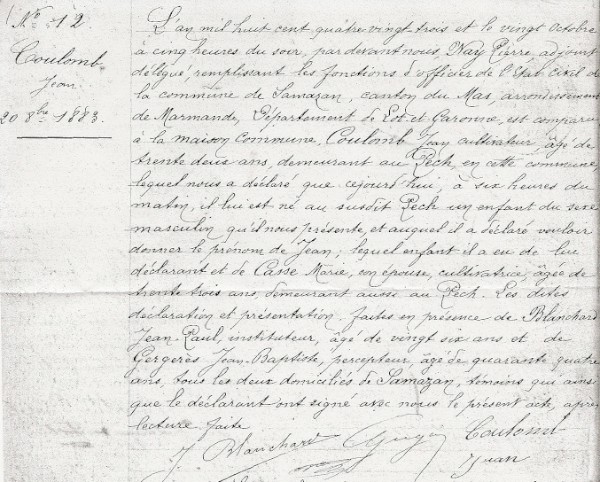 N° 12
Coulomb
Jean
20 8bre 1883.
L'an mil huit cent quatre vingt trois et le vingt octobre
à cinq heures du soir, par devant nous, Nay Pierre, adjoint
délégué, remplissant les fonctions d'officier de l'Etat civil de
la commune de Samazan, canton du Mas, arrondissement
de Marmande, Département de Lot et Garonne, est comparu
à la maison commune, Coulomb Jean cultivateur, âgé de
trente deux ans, demeurant au Pech, en cette commune,
lequel nous a déclaré que cejourd'hui, à six heures du
matin, il lui est né au susdit Pech un enfant du sexe
masculin qu'il nous présente, et auquel il a déclaré vouloir
donner le prénom de Jean; lequel enfant il a eu de lui
déclarant et de Casse Marie, son épouse, cultivatrice, âgée de
trente trois ans, demeurant aussi au Pech. Les dites
déclaration et présentation faites en présence de Blanchard
Jean-Paul, instituteur, âgé de vingt six ans et de
Gergerès Jean-Baptiste, percepteur, âgé de quarante quatre
ans, tous les deux domiciliés de Samazan, témoins qui ainsi
que le déclarant ont signé avec nous le présent acte, après
lecture faite
J. Blanchard Coulomb
Jean